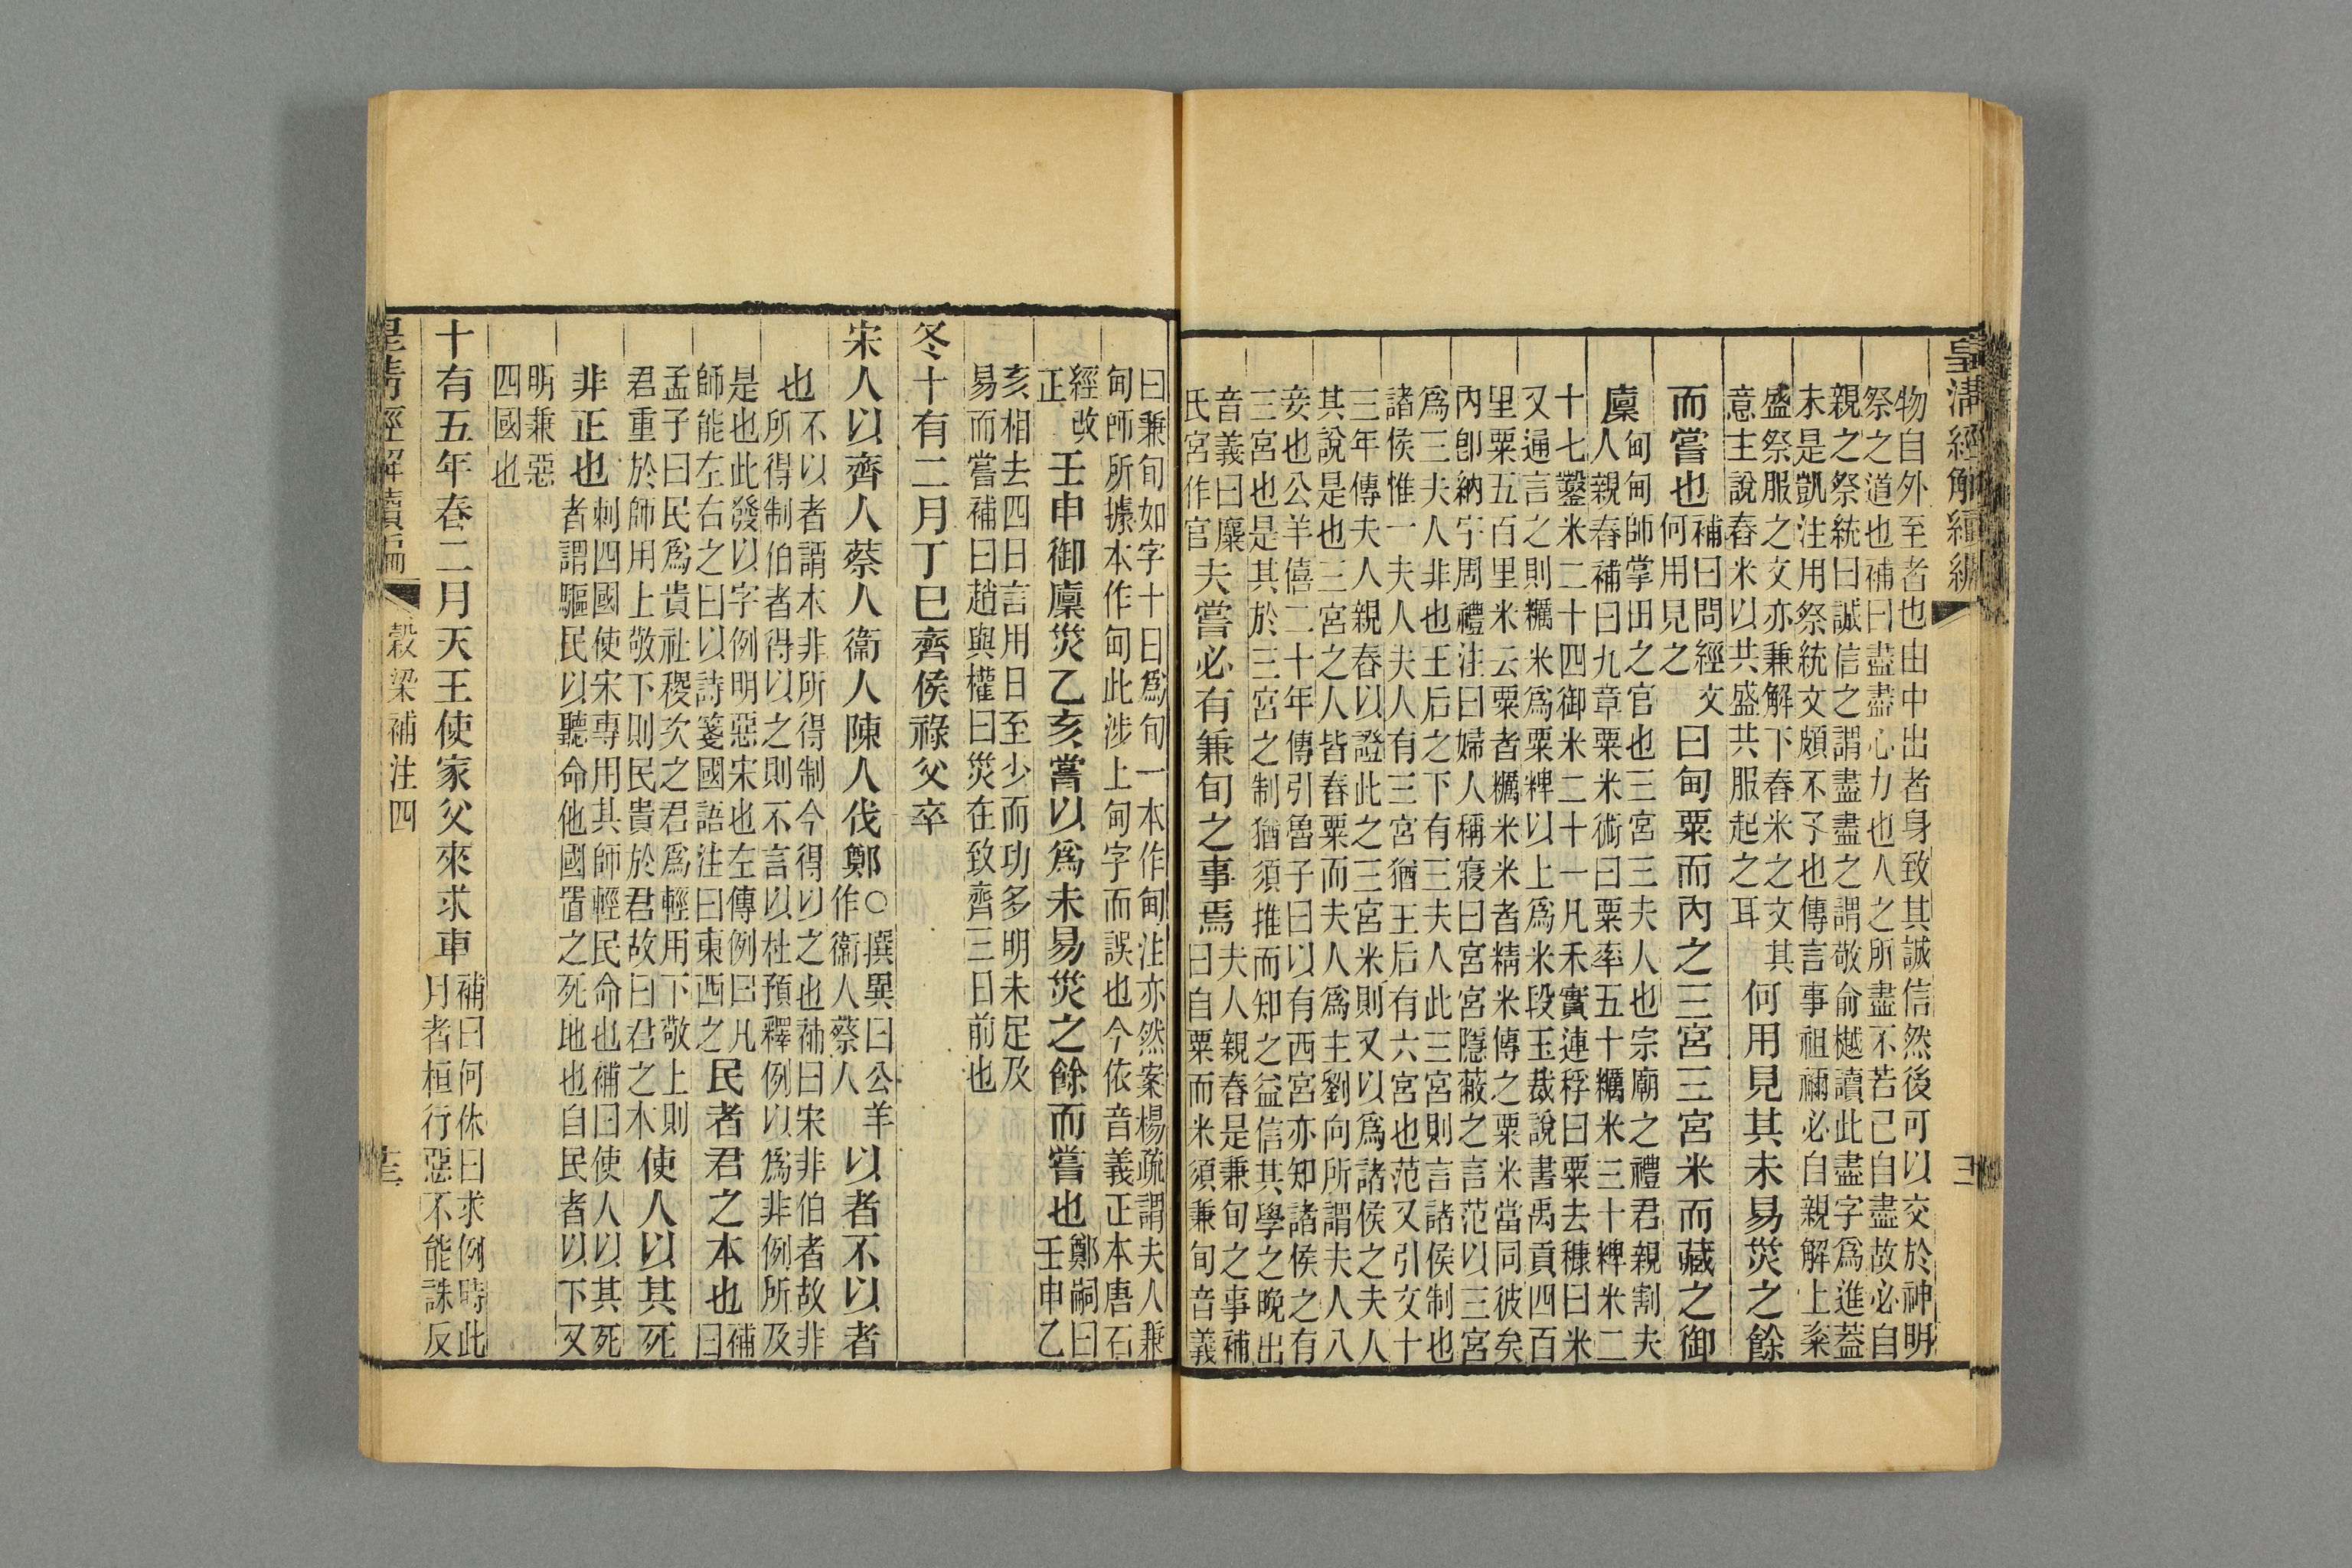 皇清經解續編
三
物自外至者也由中出者身致其誠信然後可以交於神明
祭之道也補曰盡盡心力也人之所盡不若己自盡故必自
親之祭統曰誠信之謂盡盡之謂敬俞樾讀此盡字爲進蓋
未是凱注用祭統文頗不予也傳言事祖禰必自親解上粢
盛祭服之文亦兼解下舂米之文其
意主說舂米以共盛共服起之耳
何用見其未易災之餘
而嘗也
補曰問經文
何用見之
曰甸粟而內之三宮三宮米而藏之御
廩
甸甸師掌田之官也三宮三夫人也宗廟之禮君親割夫
人親舂補曰九章粟米術曰粟率五十糲米三十粺米二
十七鑿米二十四御米二十一凡禾實連稃曰粟去穅曰米
又通言之則糲米爲粟粺以上爲米段玉裁說書禹貢四百
里粟五百里米云粟者糲米米者精米傳之粟米當同彼矣
內卽納字周禮注曰婦人稱寢曰宮宮隱蔽之言范以三宮
爲三夫人非也王后之下有三夫人此三宮則言諸侯制也
諸侯惟一夫人夫人有三宮猶王后有六宮也范又引文十
三年傳夫人親舂以證此之三宮米則又以爲諸侯之夫人
其說是也三宮之人皆舂粟而夫人爲主劉向所謂夫人八
妾也公羊僖二十年傳引魯子曰以有西宮亦知諸侯之有
三宮也是其於三宮之制猶須推而知之益信其學之晚出
音義曰麋
氏宮作官
夫嘗必有兼旬之事焉
夫人親舂是兼旬之事補
曰自粟而米須兼旬音義
曰兼旬如字十日爲旬一本作甸注亦然案楊疏謂夫人兼
甸師所據本作甸此涉上甸字而誤也今依音義正本唐石
經改
正
壬申御廩災乙亥嘗以爲未易災之餘而嘗也
鄭嗣曰
壬申乙
亥相去四日言用日至少而功多明未足及
易而嘗補曰趙與權曰災在致齊三日前也
冬十有二月丁巳齊侯祿父卒
宋人以齊人蔡人衞人陳人伐鄭
○撰異曰公羊
作衞人蔡人
以者不以者
也
不以者謂本非所得制今得以之也補曰宋非伯者故非
所得制伯者得以之則不言以杜預釋例以爲非例所及
是也此發以字例明惡宋也左傳例曰凡
師能左右之曰以詩箋國語注曰東西之
民者君之本也
補
曰
孟子曰民爲貴社稷次之君爲輕用下敬上則
君重於師用上敬下則民貴於君故曰君之本
使人以其死
非正也
刺四國使宋專用其師輕民命也補曰使人以其死
者謂驅民以聽命他國置之死地也自民者以下又
明兼惡
四國也
十有五年春二月天王使家父來求車
補曰何休曰求例時此
月者桓行惡不能誅反
皇清經解續編
穀梁補注四